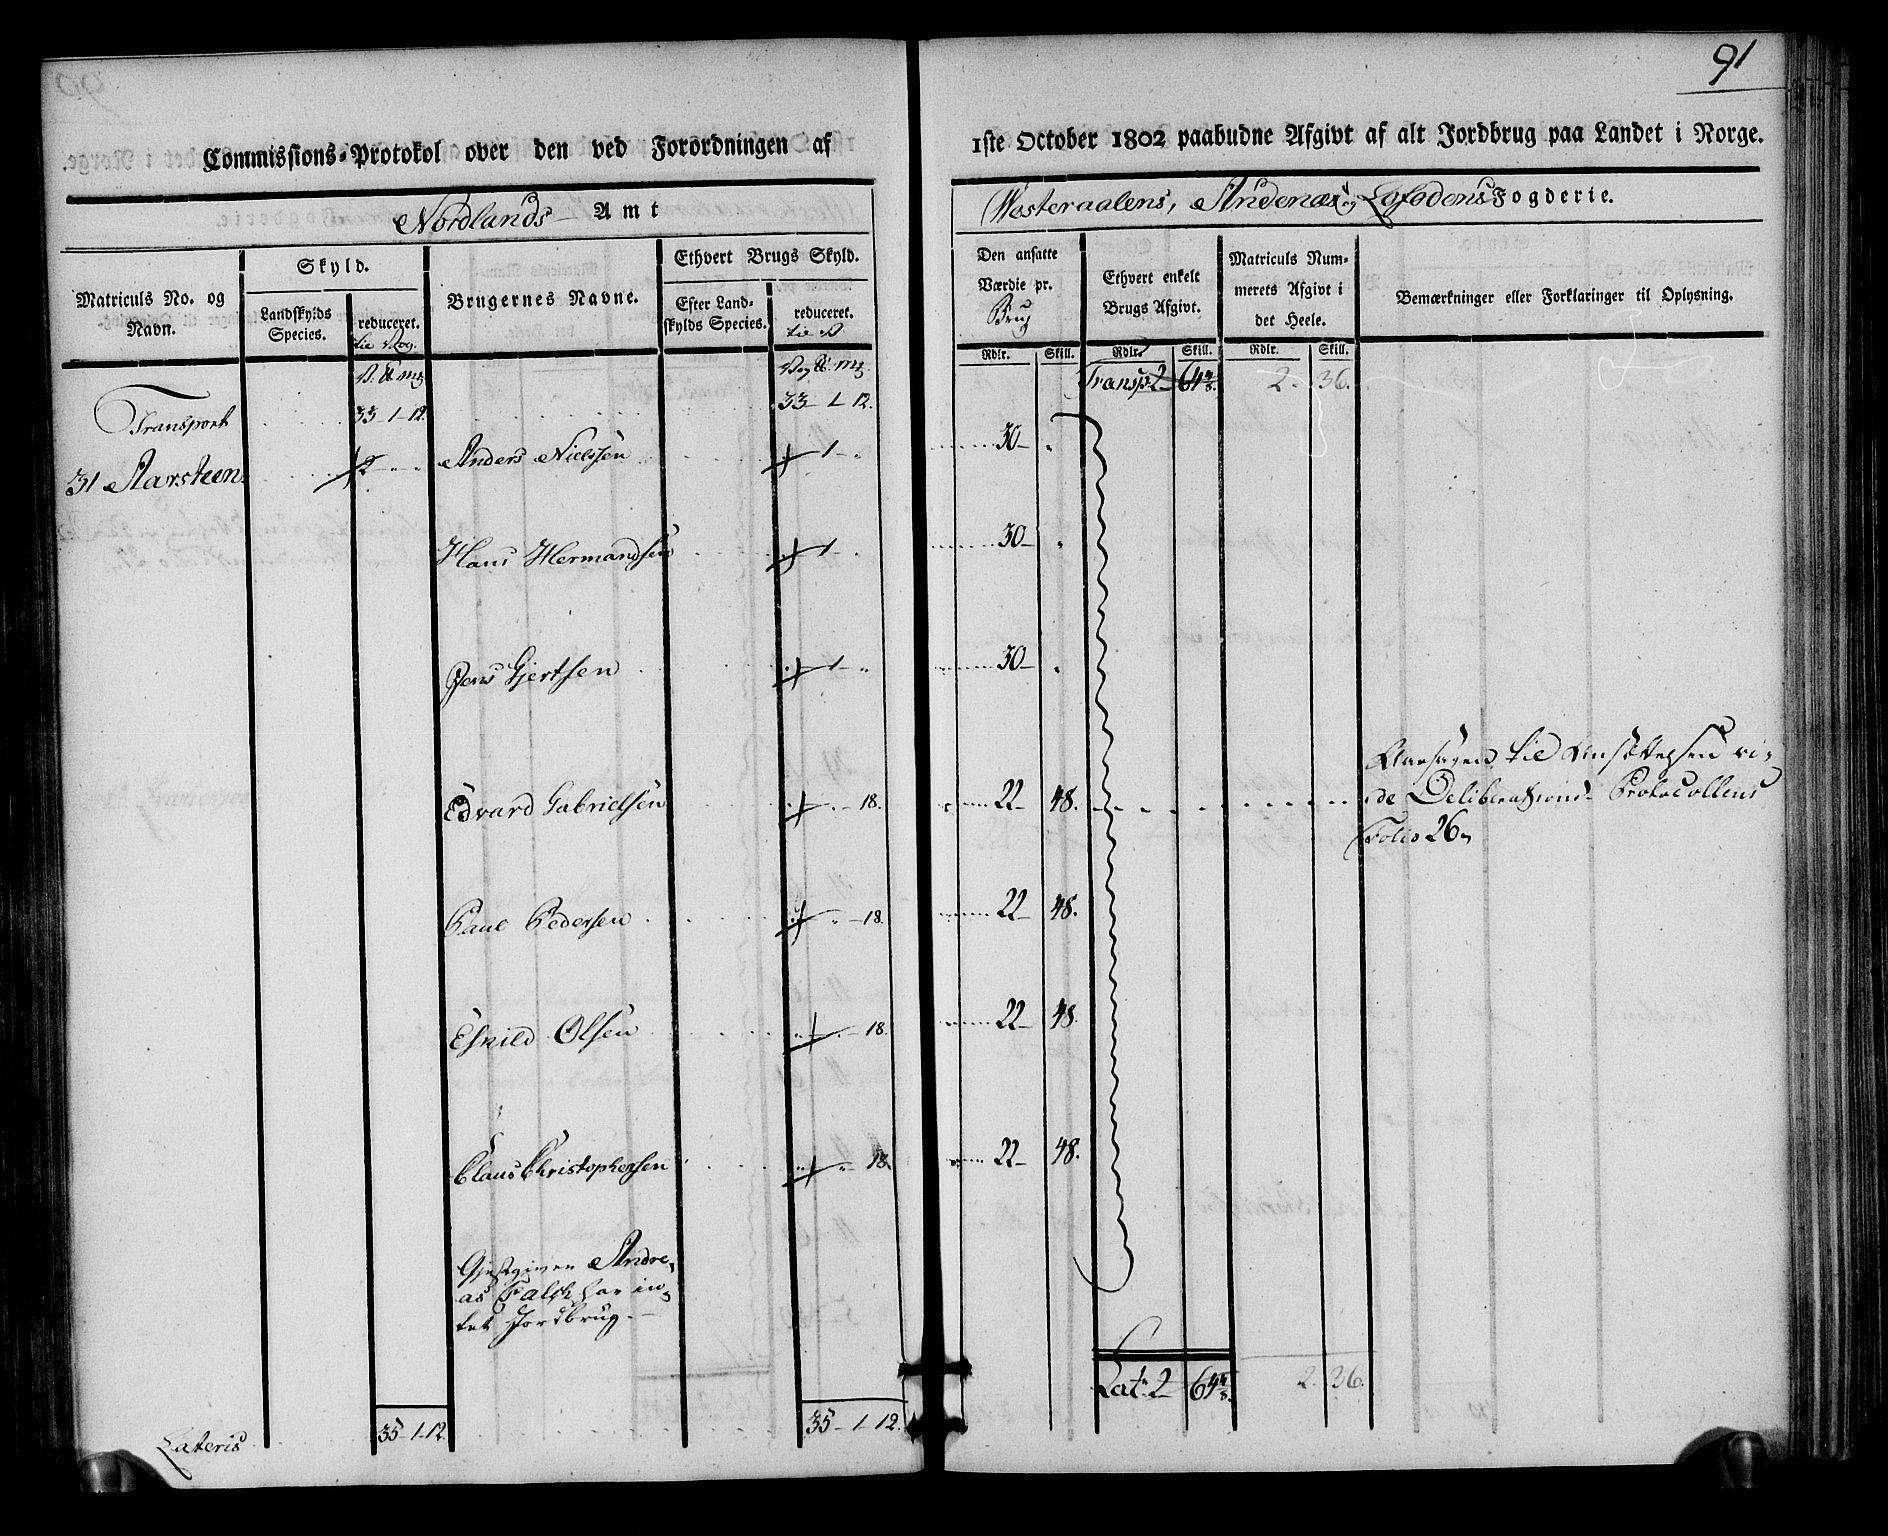 91
Commissions-Protokol over den ved Forordningen af 1ste October 1802 paabudne Afgivt af alt Jordbrug paa Landet i Norge.
Nordlands Amt
Westeraalens, Andenæs og Lofodens Fogderie.
Matriculs No. og Navn.
Skyld.
Landskylds Species.
reduceret.
til Vog.
Brugernes Navne.
Ethvert Brugs Skyld.
Efter Landskylds Species.
reduceret.
til V
Den ansatte Værdie pr. Brug
Ethvert enkelt Brugs Afgivt.
Matriculs Nummerets Afgivt i det Heele.
Bemærkninger eller Forklaringer til Oplysning.
Rdlr. Skill. Rdlr. Skill. Rdlr. Skill.
V. ℔ mk
Vog ℔. mk.
Transp. 2 64 4/8 2. 36.
Transport 33-1-12. 33-1-12.
31 Aarsteen 2 " " Anders Nielssen 1 - " 30 - "
Hans Hermandsen 1 - " 30 - "
Jens Gjertsen 1 - " 30 - "
Edvard Gabrielsen " - 18. 22 - 48.
Aarsagen til Ansættelsen vi-
de Deliberations-Protocollens
Folio 26
Paul Pedersen " - 18. 22 - 48.
Esnild Olsen " - 18. 22 - 48.
Claus Christophersen " - 18. 22 - 48.
Gjestgiver Andre-
as Falch har in-
tet Jordbrug.
Lat. 2 64 4/8 2. 36.
Lateris 35-1-12 35-1-12.